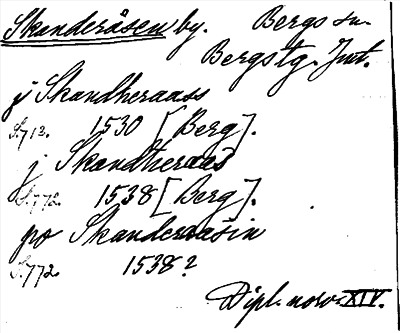 Skanderåsen by. Bergs sn.
Bergs tg. Jmt.
j Skandheraass
S. 712. 1530 [Berg].
j Skandheraas
S. 772. 1538 [Berg].
po Skanderaasin
S. 772. 1538?
Dipl. norv. XIV.